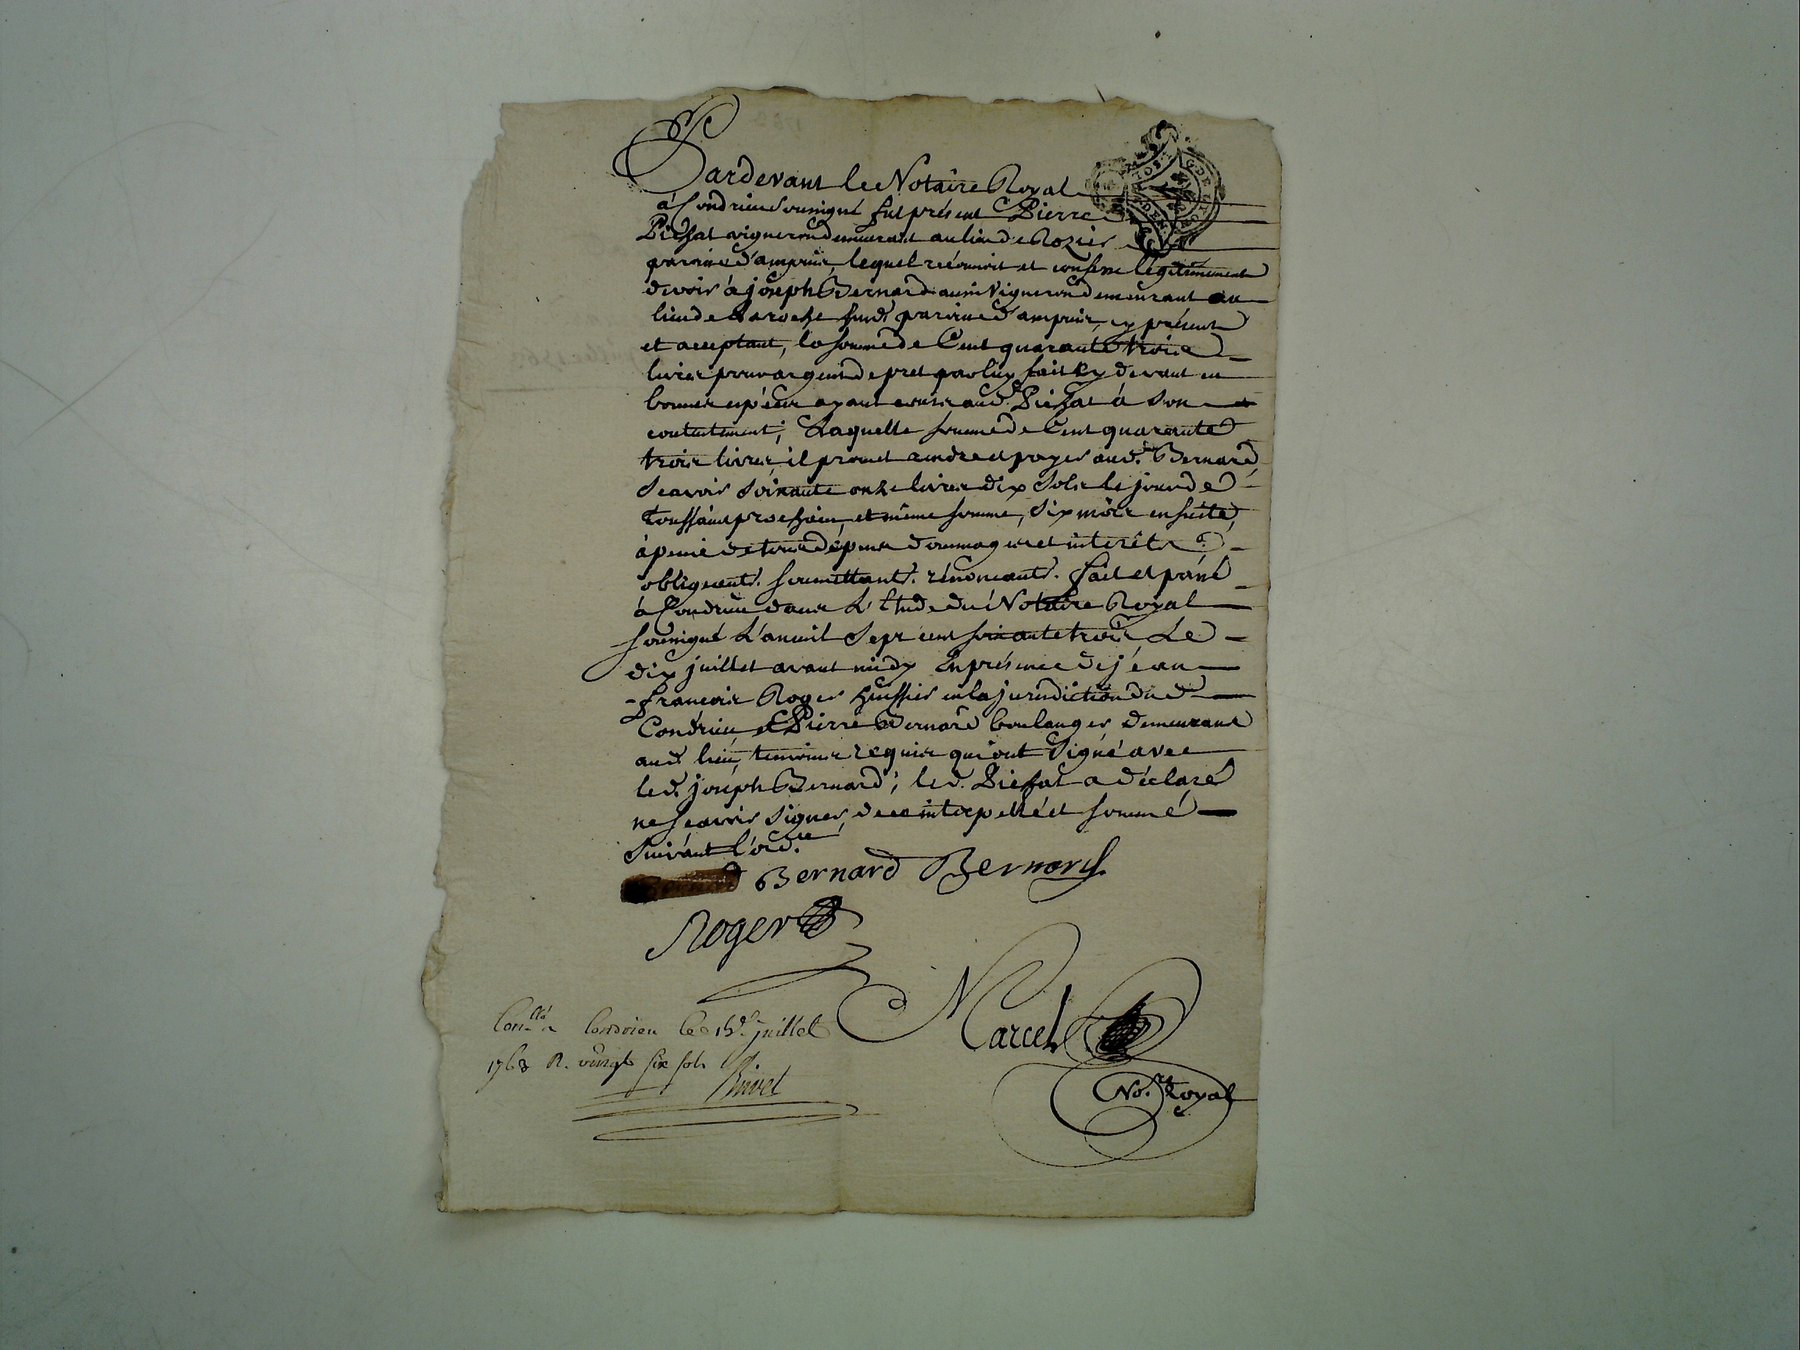 Pardevant le Notaire Royal
à Condrieu soussigné fut présent Pierre
Pichat vigneron demeurant au lieu de Rozier
paroisse d'ampuis, lequel reconnoit et confesse légitimement
devoir à joseph Bernard aussi Vigneron demeurant au
lieu de Laroche susd. paroisse d'ampuis, cy présent
et acceptant, la somme de Cent quarante trois
livres pour argent de pret par luy fait cy devant en
bonnes espéces ayant cours aud. Pichat à son
contentement; Laquelle somme de Cent quarante
trois livres il promet rendre et payer aud. Bernard
Scavoir soixante onze livres dix sols le jour de
toussaint prochain, et même somme, six mois ensuite,
à peine de tous dépens dommages et interêts
obligeants. soumettants. rénonçants. fait et passé
à Condrieu dans L'Etude du Notaire Royal
soussigné L'an mil sept cent soixante trois Le
dix juillet avant midy En présence de jean
françois Roger huissier en la jurisdiction dud.
Condrieu et Pierre Bernard boulanger demeurant
aud. lieu, temoins requis qui ont signé avec
led. joseph Bernard; led. Pichat a déclaré
ne scavoir signer, de ce interpellé et sommé
suivant l'ord.ce
Bernard Bernard
Roger
Marcel
Con.llé a Condrieu le juillet
1763 R. vingt six sols
No.re Royal